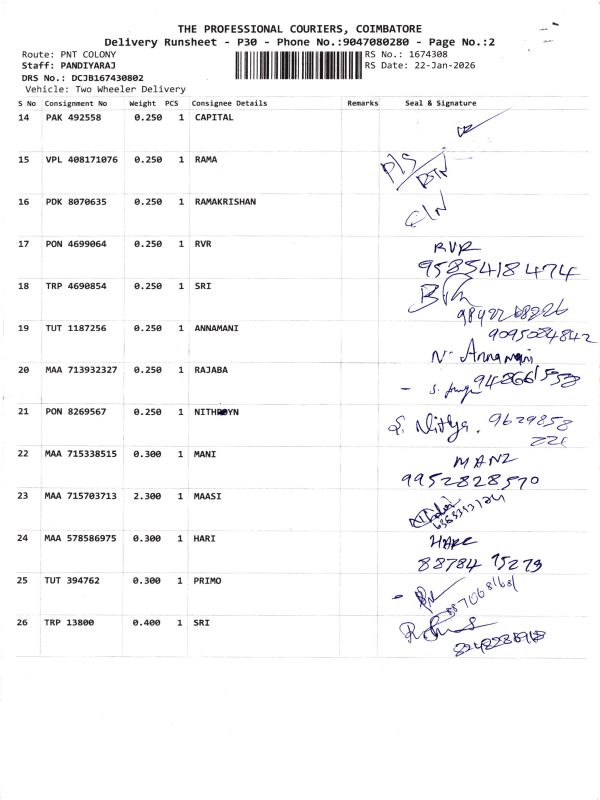 THE PROFESSIONAL COURIERS, COIMBATORE
Delivery Runsheet - P30 - Phone No.:9047080280 - Page No.:2
Route: PNT COLONY RS No.: 1674308
Staff: PANDIYARAJ RS Date: 22-Jan-2026
DRS No.: DCJB167430802
Vehicle: Two Wheeler Delivery
S No Consignment No Weight PCS Consignee Details Remarks Seal & Signature
14 PAK 492558 0.250 1 CAPITAL
15 VPL 408171076 0.250 1 RAMA P/S
RTN
16 PDK 8070635 0.250 1 RAMAKRISHAN C/N
17 PON 4699064 0.250 1 RVR RVR
9585418474
18 TRP 4690854 0.250 1 SRI
19 TUT 1187256 0.250 1 ANNAMANI 9095084842
N. Annamani
20 MAA 713932327 0.250 1 RAJABA
21 PON 8269567 0.250 1 S. Nitya. 9629858
22 MAA 715338515 0.300 1 MANI MANI
9952828570
23 MAA 715703713 2.300 1 MAASI
24 MAA 578586975 0.300 1 HARI HARI
88784 75279
25 TUT 394762 0.300 1 PRIMO
26 TRP 13800 0.400 1 SRI